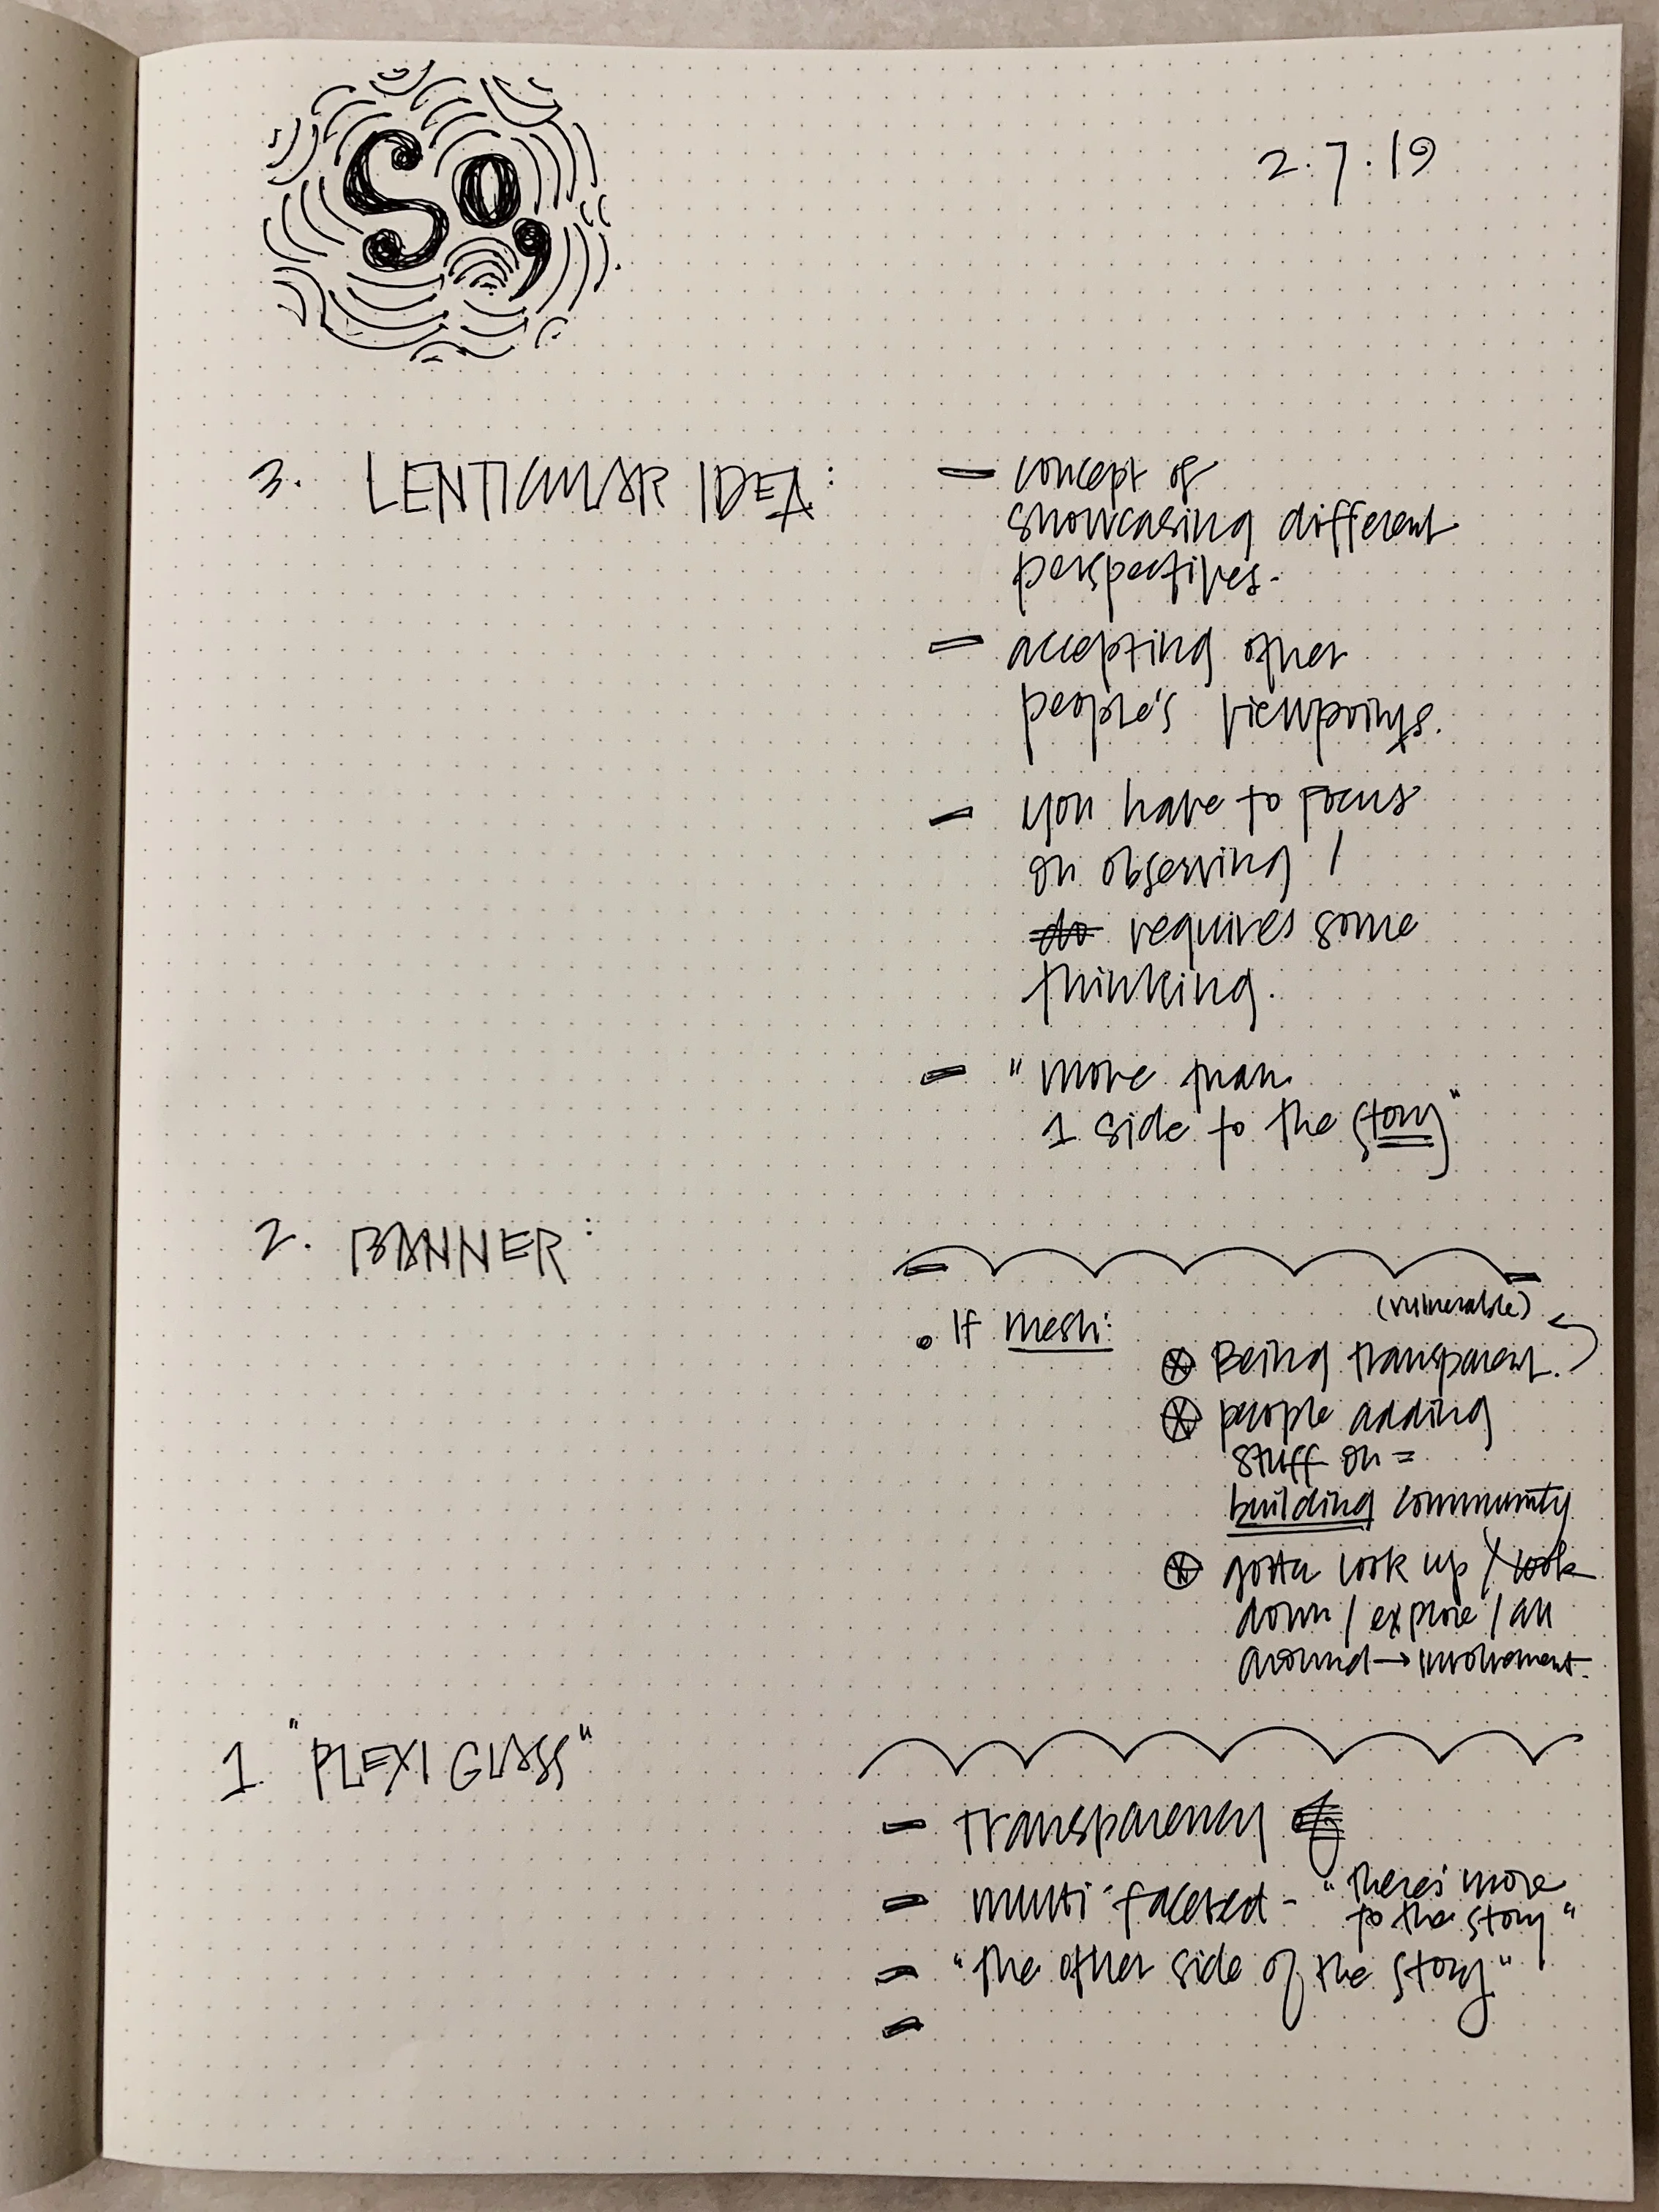 So,
2.7.19
3. LENTICULAR IDEA:
– concept of
showcasing different
perspectives.
– accepting other
people's viewpoints.
– you have to focus
on observing /
do requires some
thinking.
– "more than
1 side to the story"
2. BANNER:
(vulnerable)
• If mesh:
⊛ Being transparent.
⊛ people adding
stuff on =
building community
⊛ gotta look up / look
down / explore / all
around → involvement.
1 "PLEXI GLASS"
– transparency
– multi-faceted - "there's more
to the story"
– "the other side of the story"
–